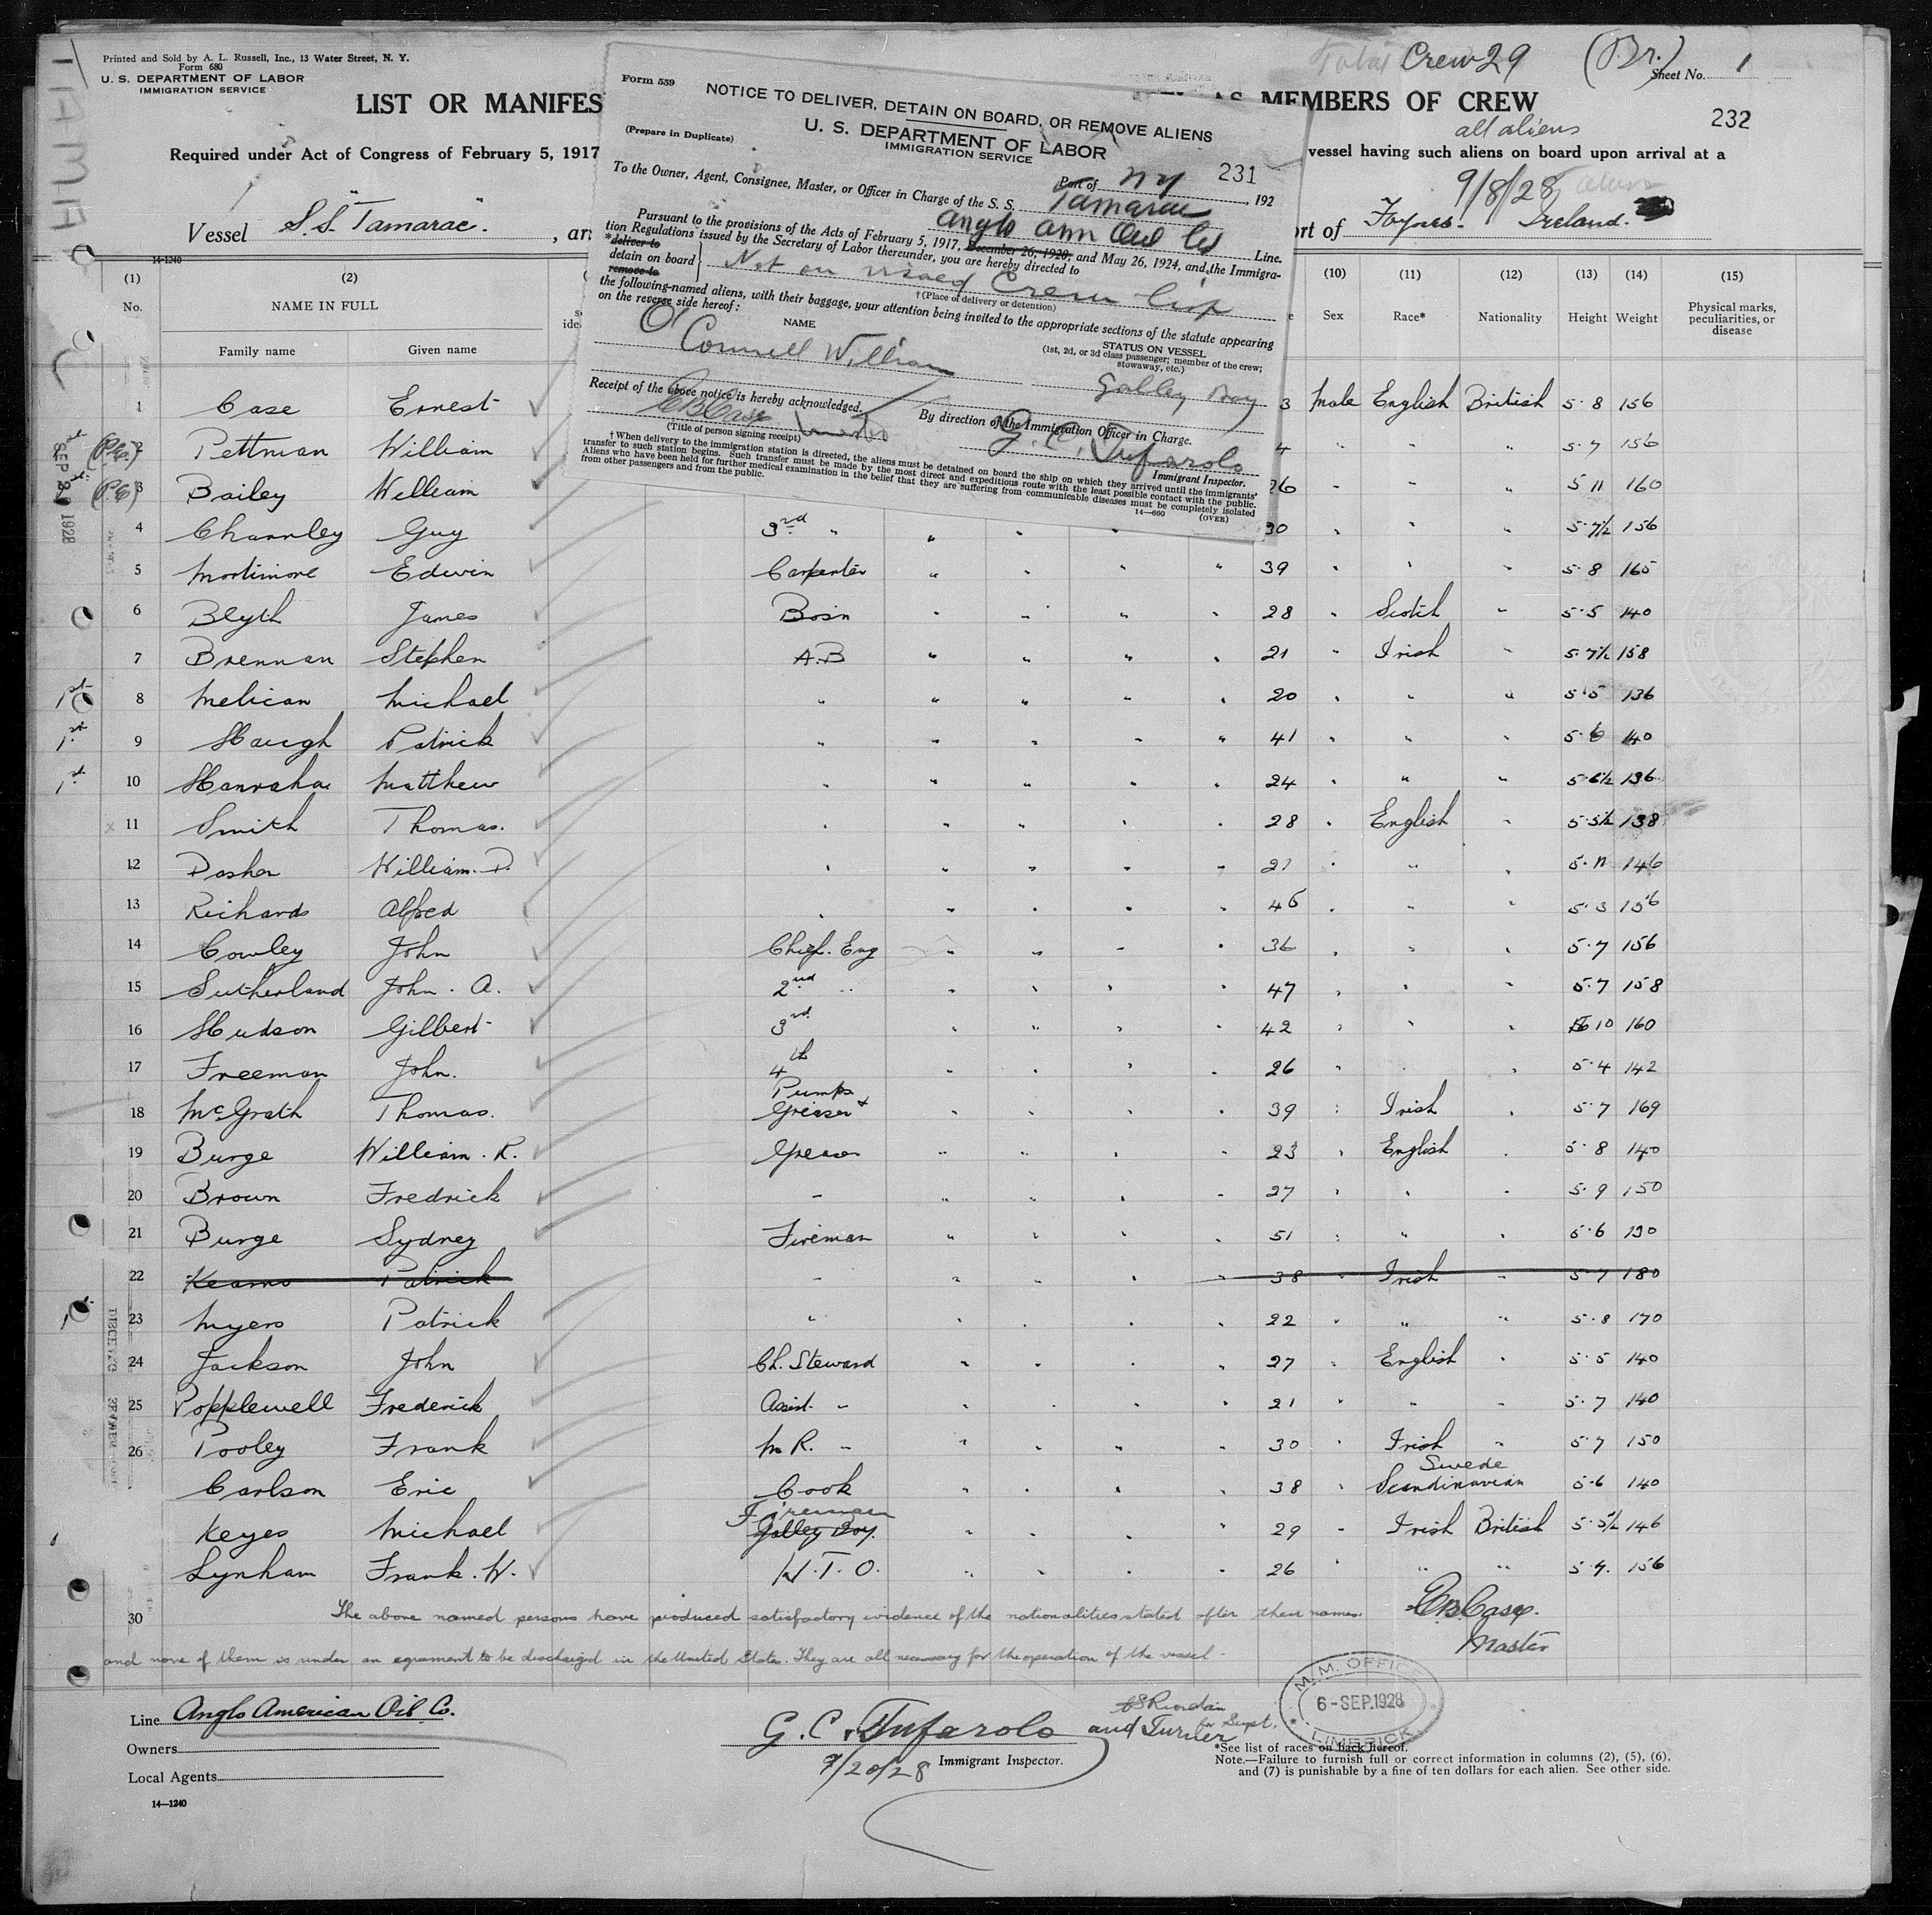 Printed and Sold by A. L. Russell, Inc., 13 Water Street, N. Y.
Form 680
U. S. DEPARTMENT OF LABOR
IMMIGRATION SERVICE
Total Crew 29 (Br.) Sheet No. 1
LIST OR MANIFES
AS MEMBERS OF CREW
all aliens
232
Required under Act of Congress of February 5, 1917
vessel having such aliens on board upon arrival at a
9/8/28
Vessel S.S. "Tamarac". , arr
ort of Foynes. Ireland.
14-1240
Form 559
NOTICE TO DELIVER, DETAIN ON BOARD, OR REMOVE ALIENS
(Prepare in Duplicate)
U. S. DEPARTMENT OF LABOR
IMMIGRATION SERVICE
231
Port of NY , 192
To the Owner, Agent, Consignee, Master, or Officer in Charge of the S. S. Tamarac
Anglo Am Oil Co Line.
Pursuant to the provisions of the Acts of February 5, 1917, December 26, 1920, and May 26, 1924, and the Immigra-
tion Regulations issued by the Secretary of Labor thereunder, you are hereby directed to
*deliver to
detain on board
remove to
Not on visaed Crew list
†(Place of delivery or detention)
the following-named aliens, with their baggage, your attention being invited to the appropriate sections of the statute appearing
on the reverse side hereof:
NAME
STATUS ON VESSEL
(1st, 2d, or 3d class passenger; member of the crew;
stowaway, etc.)
O'Connell William
Galley Boy
Receipt of the above notice is hereby acknowledged.
By direction of the Immigration Officer in Charge.
EB Case Master
G. C. Tufarolo
(Title of person signing receipt)
Immigrant Inspector.
†When delivery to the immigration station is directed, the aliens must be detained on board the ship on which they arrived until the immigrants'
transfer to such station begins. Such transfer must be made by the most direct and expeditious route with the least possible contact with the public.
Aliens who have been held for further medical examination in the belief that they are suffering from communicable diseases must be completely isolated
from other passengers and from the public.
14—660 (OVER)
(1) (2) (10) (11) (12) (13) (14) (15)
No. NAME IN FULL Sex Race* Nationality Height Weight Physical marks, peculiarities, or disease
Family name Given name
1 Case Ernest 3 Male English British 5 8 156
2 Pettman William 4 " " " 5·7 156
3 Bailey William 26 " " " 5 11 160
4 Charnley Guy 3rd " " " " " 30 " " " 5·7½ 156
5 Mortimore Edwin Carpenter " " " " 39 " " " 5·8 165
6 Blyth James Bosn " " " " 28 " Scotch " 5·5 140
7 Brennan Stephen A.B " " " " 21 " Irish " 5·7½ 158
1st 8 Melican Michael " " " " " 20 " " " 5·5 136
1st 9 Haugh Patrick " " " " " 41 " " " 5·6 140
1st 10 Hanrahan Matthew " " " " " 24 " " " 5·6½ 136
11 Smith Thomas. " " " " " 28 " English " 5·5½ 138
12 Dasher William. D. " " " " " 21 " " " 5·11 146
13 Richards Alfred " " " " " 46 " " " 5·3 156
14 Cowley John Chief. Eng " " " " 36 " " " 5·7 156
15 Sutherland John. A. 2nd " " " " " 47 " " " 5·7 158
16 Hudson Gilbert 3rd " " " " 42 " " " 5 10 160
17 Freeman John. 4th " " " " 26 " " 5·4 142
18 McGrath Thomas. Pumps + Greaser " " " " 39 " Irish " 5·7 169
19 Burge William. R. Greaser " " " " 23 " English " 5·8 140
20 Brown Fredrick " " " " " 27 " " " 5·9 150
21 Burge Sydney Fireman " " " " 51 " " " 5·6 130
22 Kearns Patrick " " " " " 38 " Irish " 5·7 180
23 Myers Patrick " " " " " 22 " " " 5·8 170
24 Jackson John Ch. Steward " " " " 27 " English " 5·5 140
25 Popplewell Frederick Assist. " " " " " 21 " " " 5·7 140
26 Pooley Frank M R. " " " " " 30 " Irish " 5·7 150
Swede
Carlson Eric Cook " " " " 38 " Scandinavian 5·6 140
Fireman
Keyes Michael Galley Boy. " " " " 29 " Irish British 5·5½ 146
Lynham Frank. W. W. T. O. " " " " 26 " " " 5 9. 156
30 The above named persons have produced satisfactory evidence of the nationalities stated after their names
and none of them is under an agrement to be discharged in the United States. They are all necessary for the operation of the vessel.
EB. Case.
Master
SEP 20 1928
Line Anglo American Oil Co.
Owners
Local Agents
14—1240
G. C. Tufarolo and Turner
for Supt.
9/20/28 Immigrant Inspector.
M. M. OFFICE
6-SEP.1928
LIMERICK
*See list of races on back hereof.
Note.—Failure to furnish full or correct information in columns (2), (5), (6),
and (7) is punishable by a fine of ten dollars for each alien. See other side.